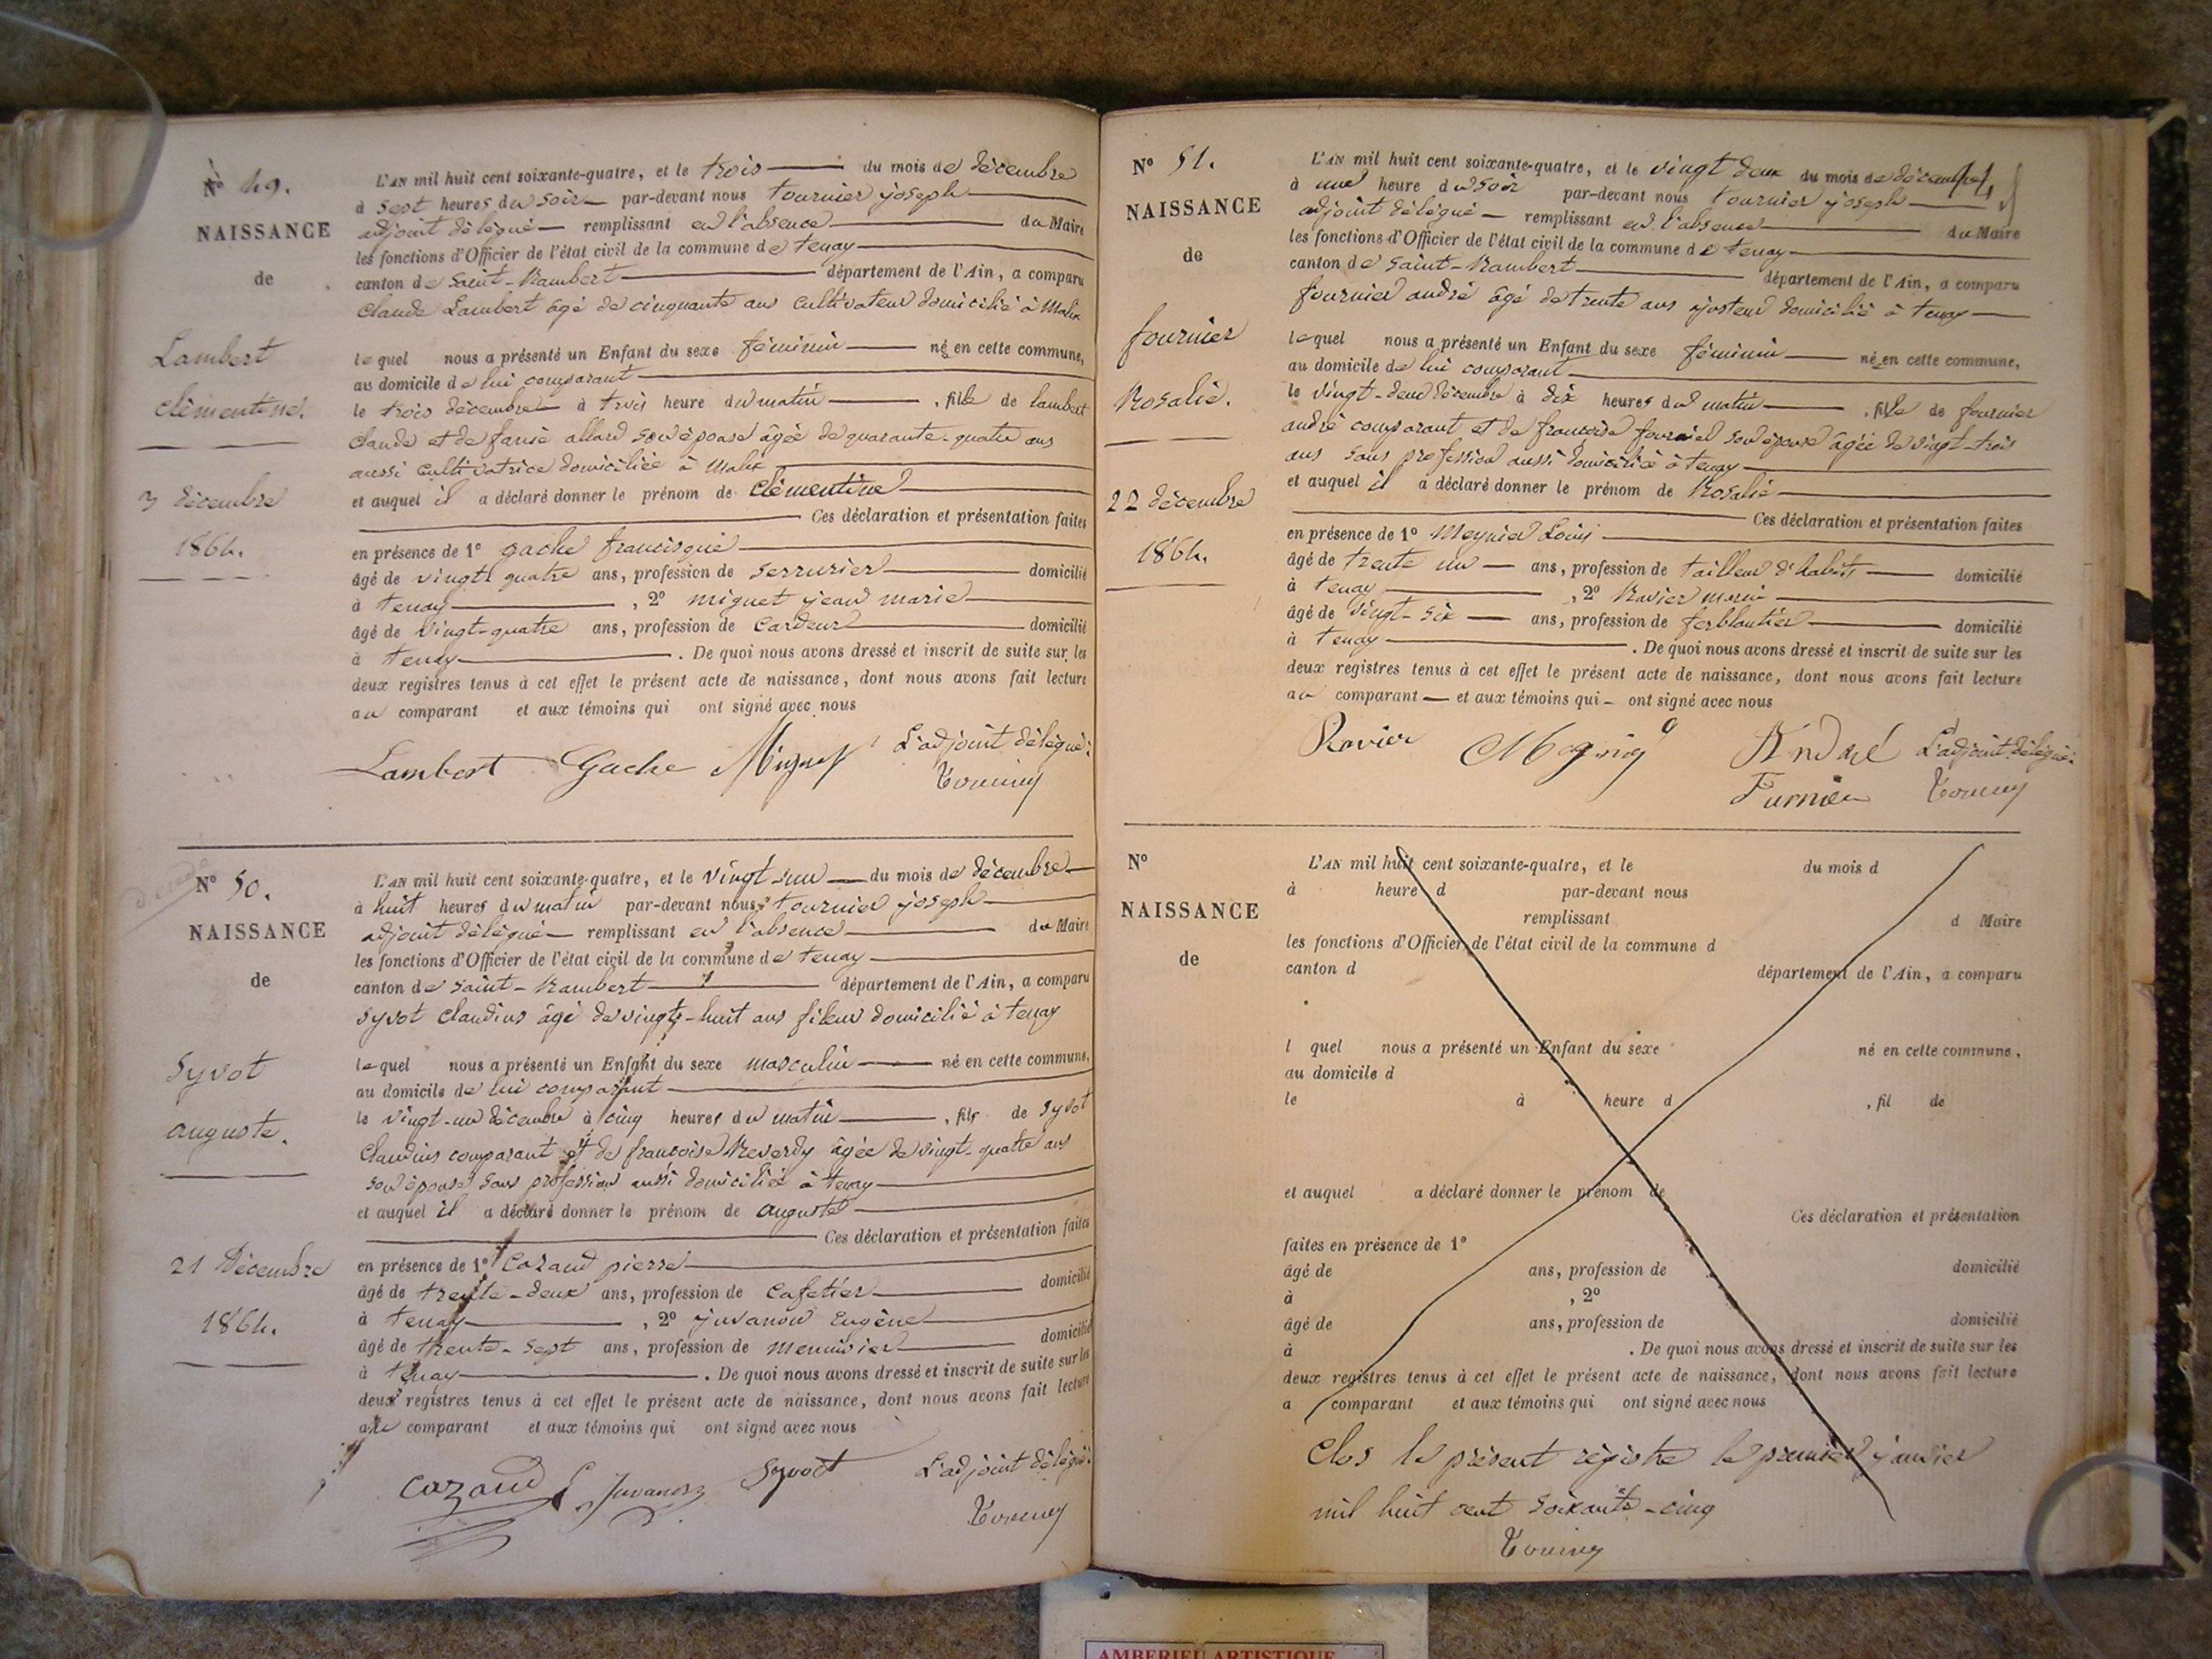 N° 49.
NAISSANCE
de
Lambert
Clémentine.
3 décembre
1864.
L'AN mil huit cent soixante-quatre, et le trois du mois de décembre
à sept heures du soir par-devant nous tournier joseph
adjoint délégué remplissant en l'absence du Maire
les fonctions d'Officier de l'état civil de la commune de tenay
canton de Saint-Rambert département de l'Ain, a comparu
Claude Lambert âgé de cinquante ans cultivateur domicilié à Malix
lequel nous a présenté un Enfant du sexe féminin née en cette commune,
au domicile de lui comparant
le trois décembre à trois heure du matin , fille de lambert
claude et de allard son épouse âgée de quarante-quatre ans
aussi cultivatrice domiciliée à Malix
et auquel il a déclaré donner le prénom de Clémentine
Ces déclaration et présentation faites
en présence de 1° gache francisque
âgé de vingt quatre ans, profession de serrurier domicilié
à tenay , 2° miguet jean marie
âgé de vingt-quatre ans, profession de Cardeur domicilié
à tenay . De quoi nous avons dressé et inscrit de suite sur les
deux registres tenus à cet effet le présent acte de naissance, dont nous avons fait lecture
au comparant et aux témoins qui ont signé avec nous
Lambert Gache Miguet L'adjoint délégué:
N° 50.
NAISSANCE
de
Syvot
auguste.
21 Décembre
1864.
L'AN mil huit cent soixante-quatre, et le vingt-un du mois de décembre
à huit heures du matin par-devant nous tournier joseph
adjoint délégué remplissant en l'absence du Maire
les fonctions d'Officier de l'état civil de la commune de tenay
canton de Saint-Rambert département de l'Ain, a comparu
Syvot Claudius âgé de vingt-huit ans fileur domicilié à tenay
lequel nous a présenté un Enfant du sexe masculin né en cette commune,
au domicile de lui comparant
le vingt-un décembre à cinq heures du matin , fils de Syvot
Claudius comparant et de francoise Reverdy âgée de vingt-quatre ans
son épouse sans profession aussi domiciliée à tenay
et auquel il a déclaré donner le prénom de auguste
Ces déclaration et présentation faites
en présence de 1° Cozand pierre
âgé de trente-deux ans, profession de Cafetier domicilié
à tenay , 2° juvanon Eugène
âgé de trente-sept ans, profession de menuisier domicilié
à tenay . De quoi nous avons dressé et inscrit de suite sur les
deux registres tenus à cet effet le présent acte de naissance, dont nous avons fait lecture
au comparant et aux témoins qui ont signé avec nous
Cozand Juvanon Syvot L'adjoint délégué:
N° 51.
NAISSANCE
de
fournier
Rosalie.
22 décembre
1864.
L'AN mil huit cent soixante-quatre, et le vingt deux du mois de décembre
à une heure du soir par-devant nous tournier joseph
adjoint délégué remplissant en l'absence du Maire
les fonctions d'Officier de l'état civil de la commune de tenay
canton de Saint-Rambert département de l'Ain, a comparu
fournier andré âgé de trente ans ajusteur domicilié à tenay
lequel nous a présenté un Enfant du sexe féminin née en cette commune,
au domicile de lui comparant
le vingt-deux décembre à dix heures du matin , fille de fournier
andré comparant et de francoise son épouse âgée de vingt-trois
ans sans profession aussi domiciliée à tenay
et auquel il a déclaré donner le prénom de Rosalie
Ces déclaration et présentation faites
en présence de 1° Meynier Louis
âgé de trente un ans, profession de tailleur d'habits domicilié
à tenay , 2° Ravier marin
âgé de vingt-six ans, profession de ferblantier domicilié
à tenay . De quoi nous avons dressé et inscrit de suite sur les
deux registres tenus à cet effet le présent acte de naissance, dont nous avons fait lecture
au comparant et aux témoins qui ont signé avec nous
Ravier André L'adjoint délégué:
Furnier
N°
NAISSANCE
de
L'AN mil huit cent soixante-quatre, et le du mois d
à heure d par-devant nous
remplissant d Maire
les fonctions d'Officier de l'état civil de la commune d
canton d département de l'Ain, a comparu
l quel nous a présenté un Enfant du sexe né en cette commune,
au domicile d
le à heure d , fil de
et auquel a déclaré donner le prénom de
Ces déclaration et présentation
faites en présence de 1°
âgé de ans, profession de domicilié
à , 2°
âgé de ans, profession de domicilié
à . De quoi nous avons dressé et inscrit de suite sur les
deux registres tenus à cet effet le présent acte de naissance, dont nous avons fait lecture
a comparant et aux témoins qui ont signé avec nous
Clos le présent registre le premier janvier
mil huit cent soixante-cinq
AMBERIEU ARTISTIQUE